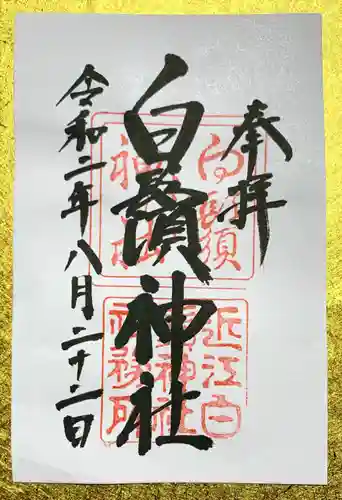 奉拝
白鬚神社
令和二年八月二十二日
白鬚
神社
近江白
鬚神社
社務所